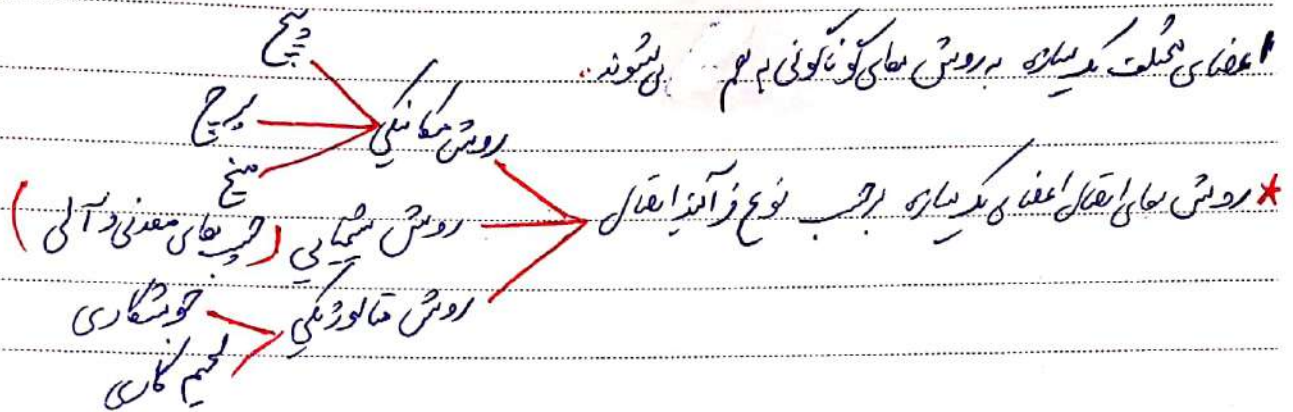 اعضای مختلف یک سازه به روش های گوناگونی به هم می شوند.
* روش های اتصال اعضای یک سازه برحسب نوع فرآیند اتصال
روش مکانیکی
پیچ
پرچ
میخ
روش شیمیایی (چسب های معدنی و آلی)
روش متالورژیکی
جوشکاری
لحیم کاری